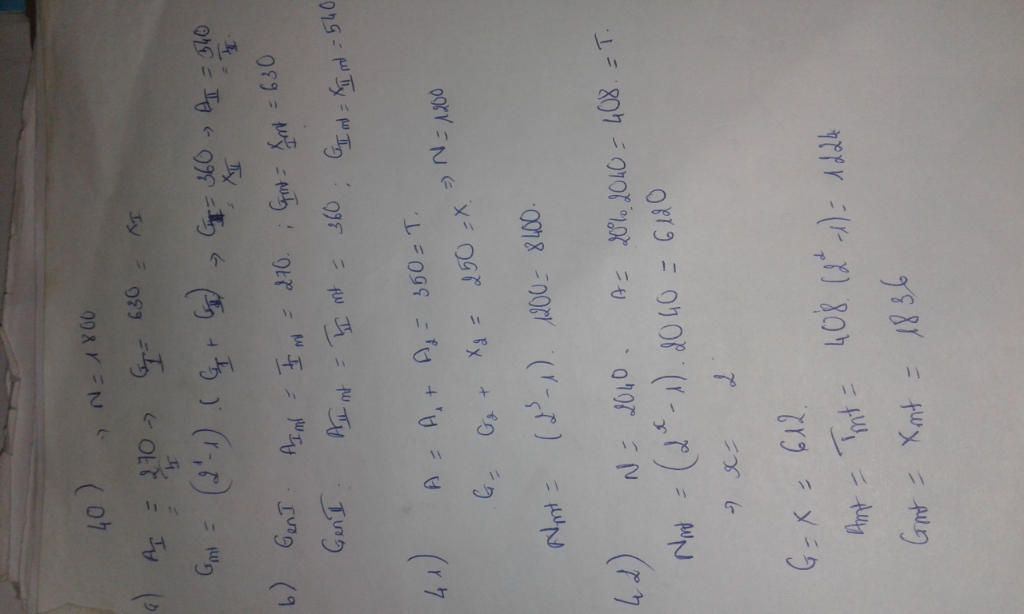 40) => N = 1800
a) A_I = 270 => G_I = 630 = X_I
= T_I
G_mt = (2^1 - 1) . (G_I + G_II) => G_II = 360 => A_II = 540
= X_II = T_II.
b) Gen I : A_I mt = T_I mt = 270. ; G_I mt = X_I mt = 630
Gen II : A_II mt = T_II mt = 360 ; G_II mt = X_II mt = 540
41) A = A_1 + A_2 = 350 = T.
G = G_2 + X_2 = 250 = X. => N = 1200
N_mt = (2^3 - 1) . 1200 = 8400.
42) N = 2040. A = 20%.2040 = 408. = T.
N_mt = (2^x - 1) . 2040 = 6120
=> x = 2
G = X = 612.
A_mt = T_mt = 408. (2^2 - 1) = 1224
G_mt = X_mt = 1836